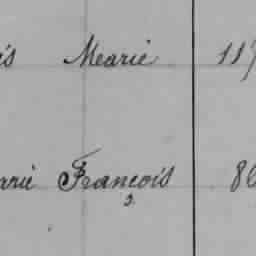 is Mearie 117
arie François 80
2